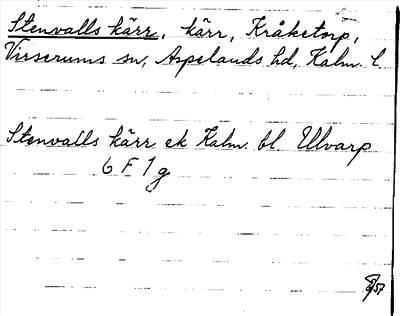 Stenvalls kärr, kärr, Kråketorp,
Virserums sn, Aspelands hd, Kalm. l.
Stenvalls kärr ek Kalm. bl. Ulvarp
6 F 1 g